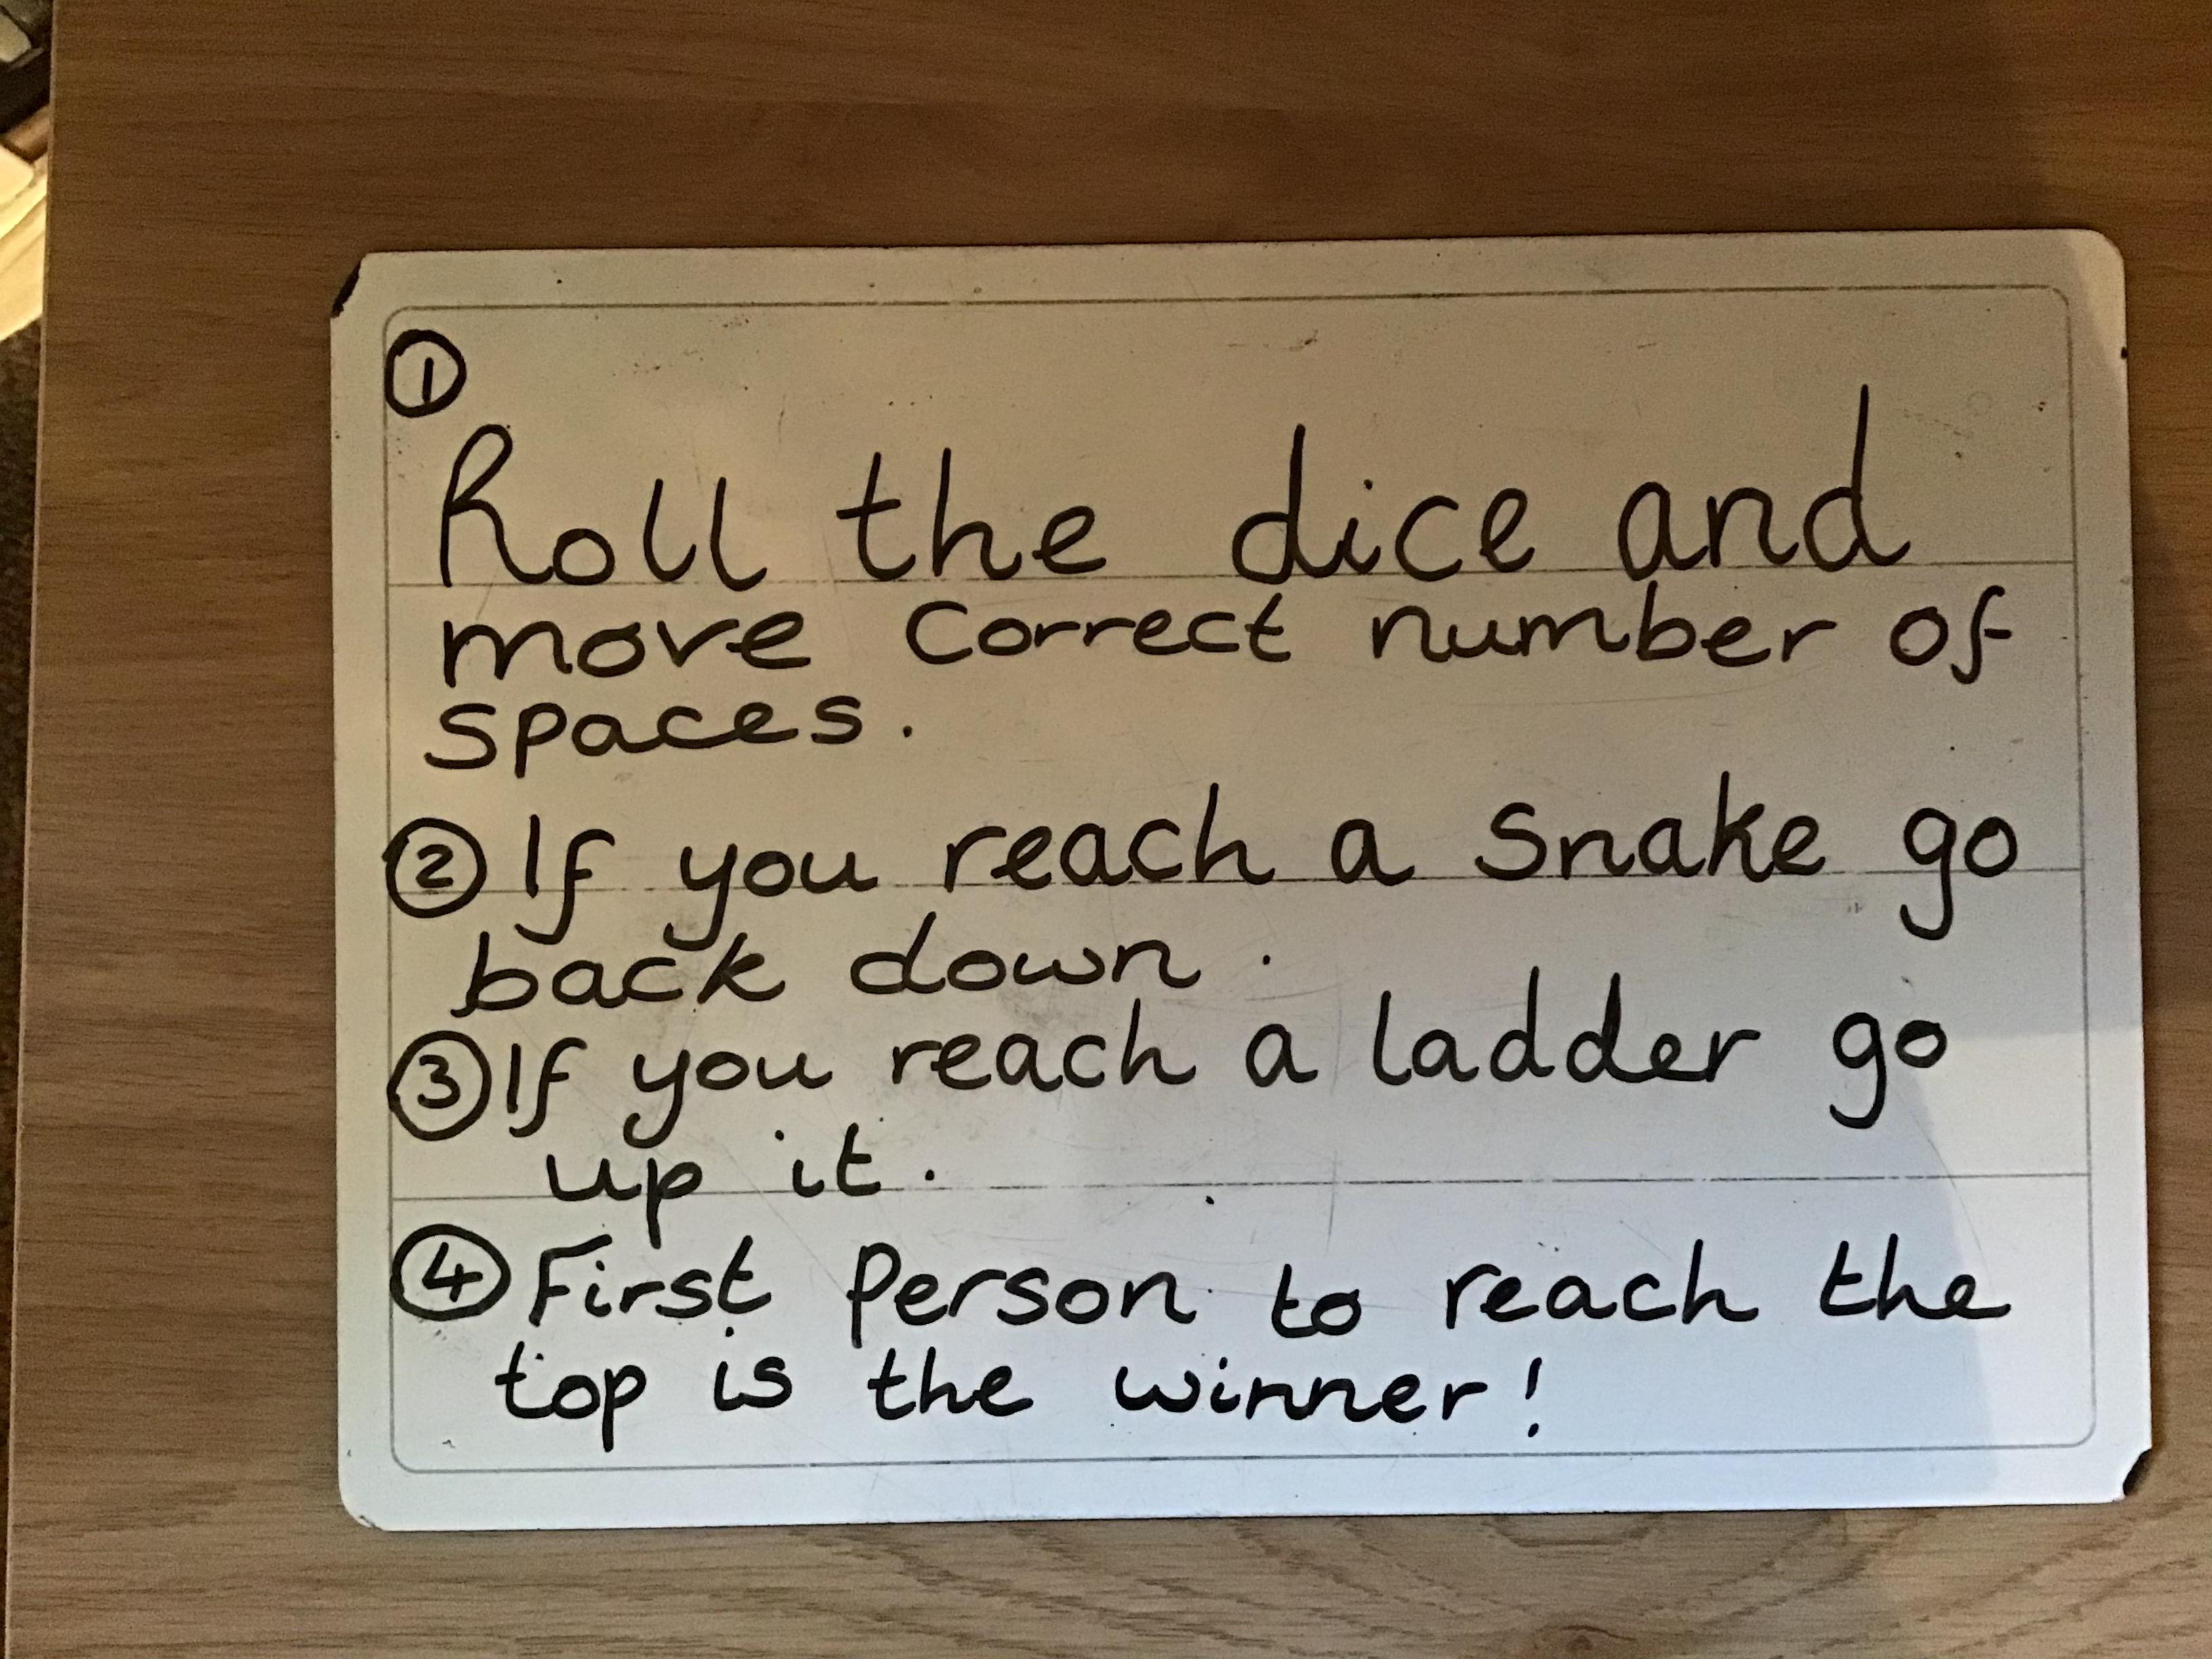 ①
Roll the dice and
move correct number of
spaces.
② If you reach a snake go
back down.
③ If you reach a ladder go
up it.
④ First person to reach the
top is the winner!